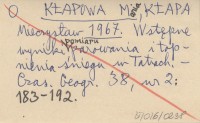 O KŁAPOWA M., KŁAPA
Mieczysław 1967. Wstępne
wyniki pomiaru parowania i top-
nienia śniegu w Tatrach.
Czas. Geogr. 38, nr 2:
183-192.